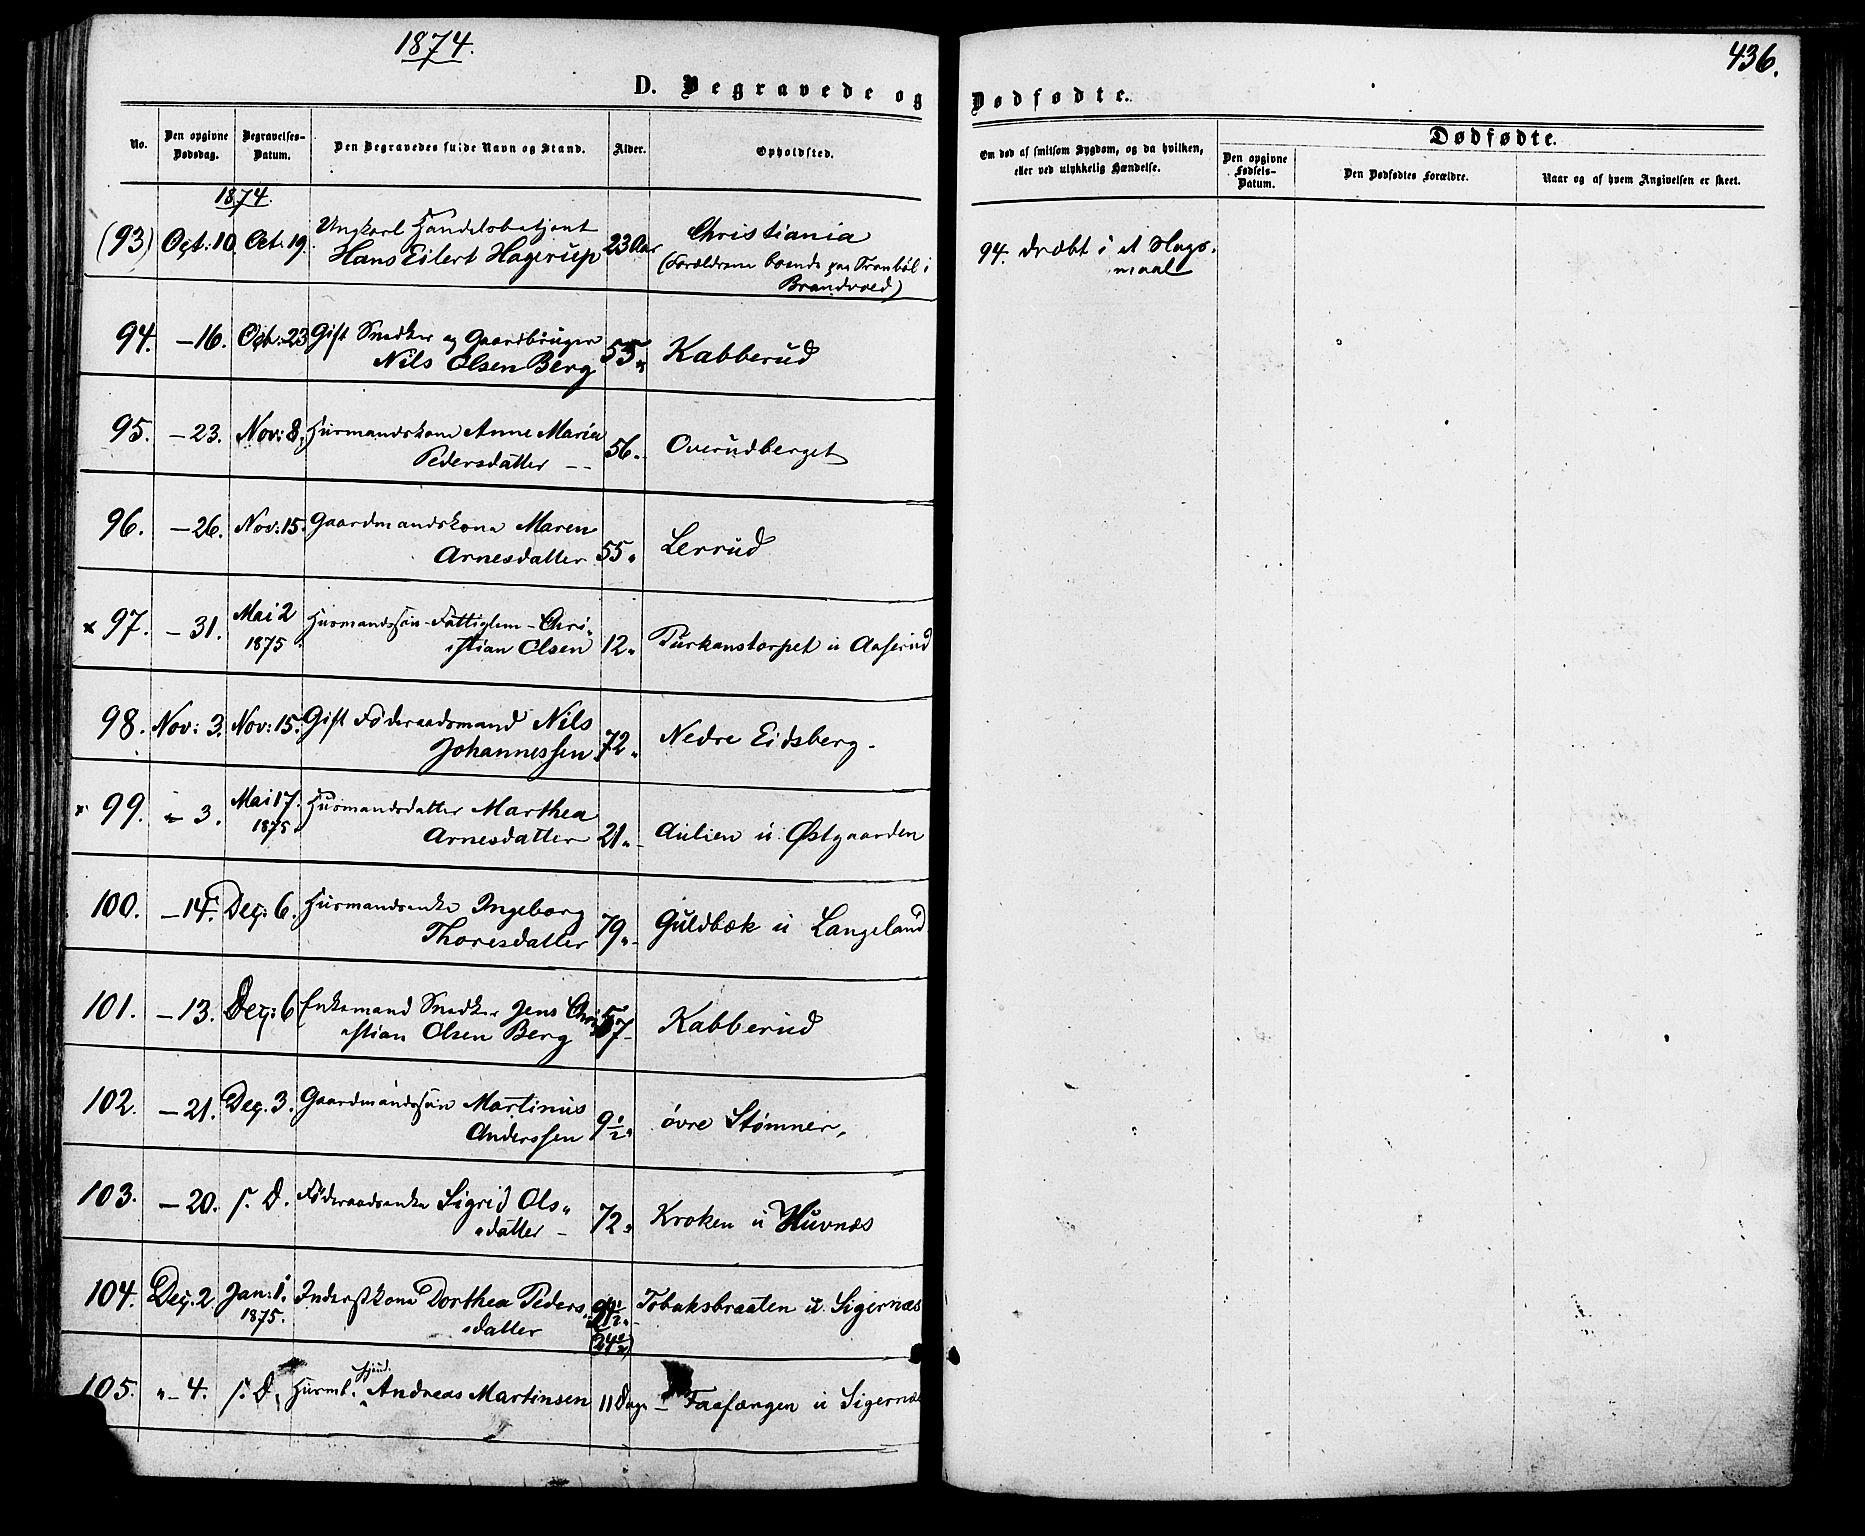 1874.
436.
D. Begravede og Dødfødte.
No.
Den opgivne Dødsdag.
Begravelses-Datum.
Den Begravedes fulde Navn og Stand.
Alder.
Opholdsted.
Om død af smitsom Sygdom, og da hvilken, eller ved ulykkelig Hændelse.
Dødfødte.
Den opgivne Fødsels-Datum.
Den Dødfødtes Forældre.
Naar og af hvem Angivelsen er skeet.
1874.
(93) Oct: 10. Oct: 19. Ungkarl Handelsbetjent
Hans Eilert Hagerup 23 Aar Christiania
(Forældrene boende paa Tranbøl i
Brandvold)
94. dræbt i et Slags-
maal
94. – 16. Oct: 23 Gift Snedker og Gaardbruger
Nils Olsen Berg 55 " Kabberud
95. – 23. Nov: 8. Huusmandskone Anne Maria
Pedersdatter – – 56 " Overudberget
96. – 26. Nov: 15. Gaardmandskone Maren
Arnesdatter 55 " Lerrud
x 97. – 31. Mai 2
1875 Huusmandssøn - Fattiglem - Chri-
stian Olsen 12 " Turkanstorpet u Aaserud
98. Nov: 3. Nov: 15. Gift Føderaadsmand Nils
Johannessen 72 " Nedre Eidsberg.
x 99. " 3. Mai 17.
1875. Huusmandsdatter Marthea
Arnesdatter 21 " Aulien u. Østgaarden
100. – 14. Dec: 6. Huusmandsenke Ingeborg
Thoresdatter 79 " Guldbæk u Langeland
101. – 13. Dec: 6 Enkemand Snedker Jens Chri-
stian Olsen Berg 57 – Kabberud
102. – 21. Dec. 3. Gaardmandssøn Martinus
Anderssen 9 1/2 " øvre Stømner,
103. – 20. s. D. Føderaadsenke Sigrid Ols-
datter – 72 " Kroken u Huvnæs
104. Dec. 2 Jan: 1.
1875. Inderstkone Dorthea Peders
datter (24 1/2) Tobaksbraaten u. Sigernæs
105. " – 4. s. D. Huusmb. Andreas Martinsen 11 Dage – Faafængen u Sigernæs